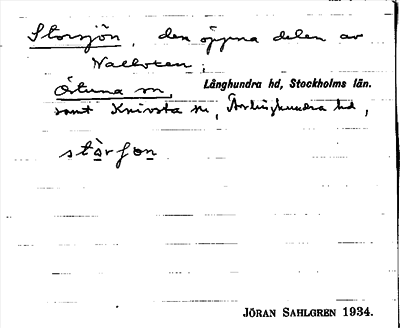 Storsjön, den öppna delen av
Valloxen;
Östuna sn, Långhundra hd, Stockholms län.
samt Knivsta sn, Ärlinghundra hd,
stòrʃon
JÖRAN SAHLGREN 1934.